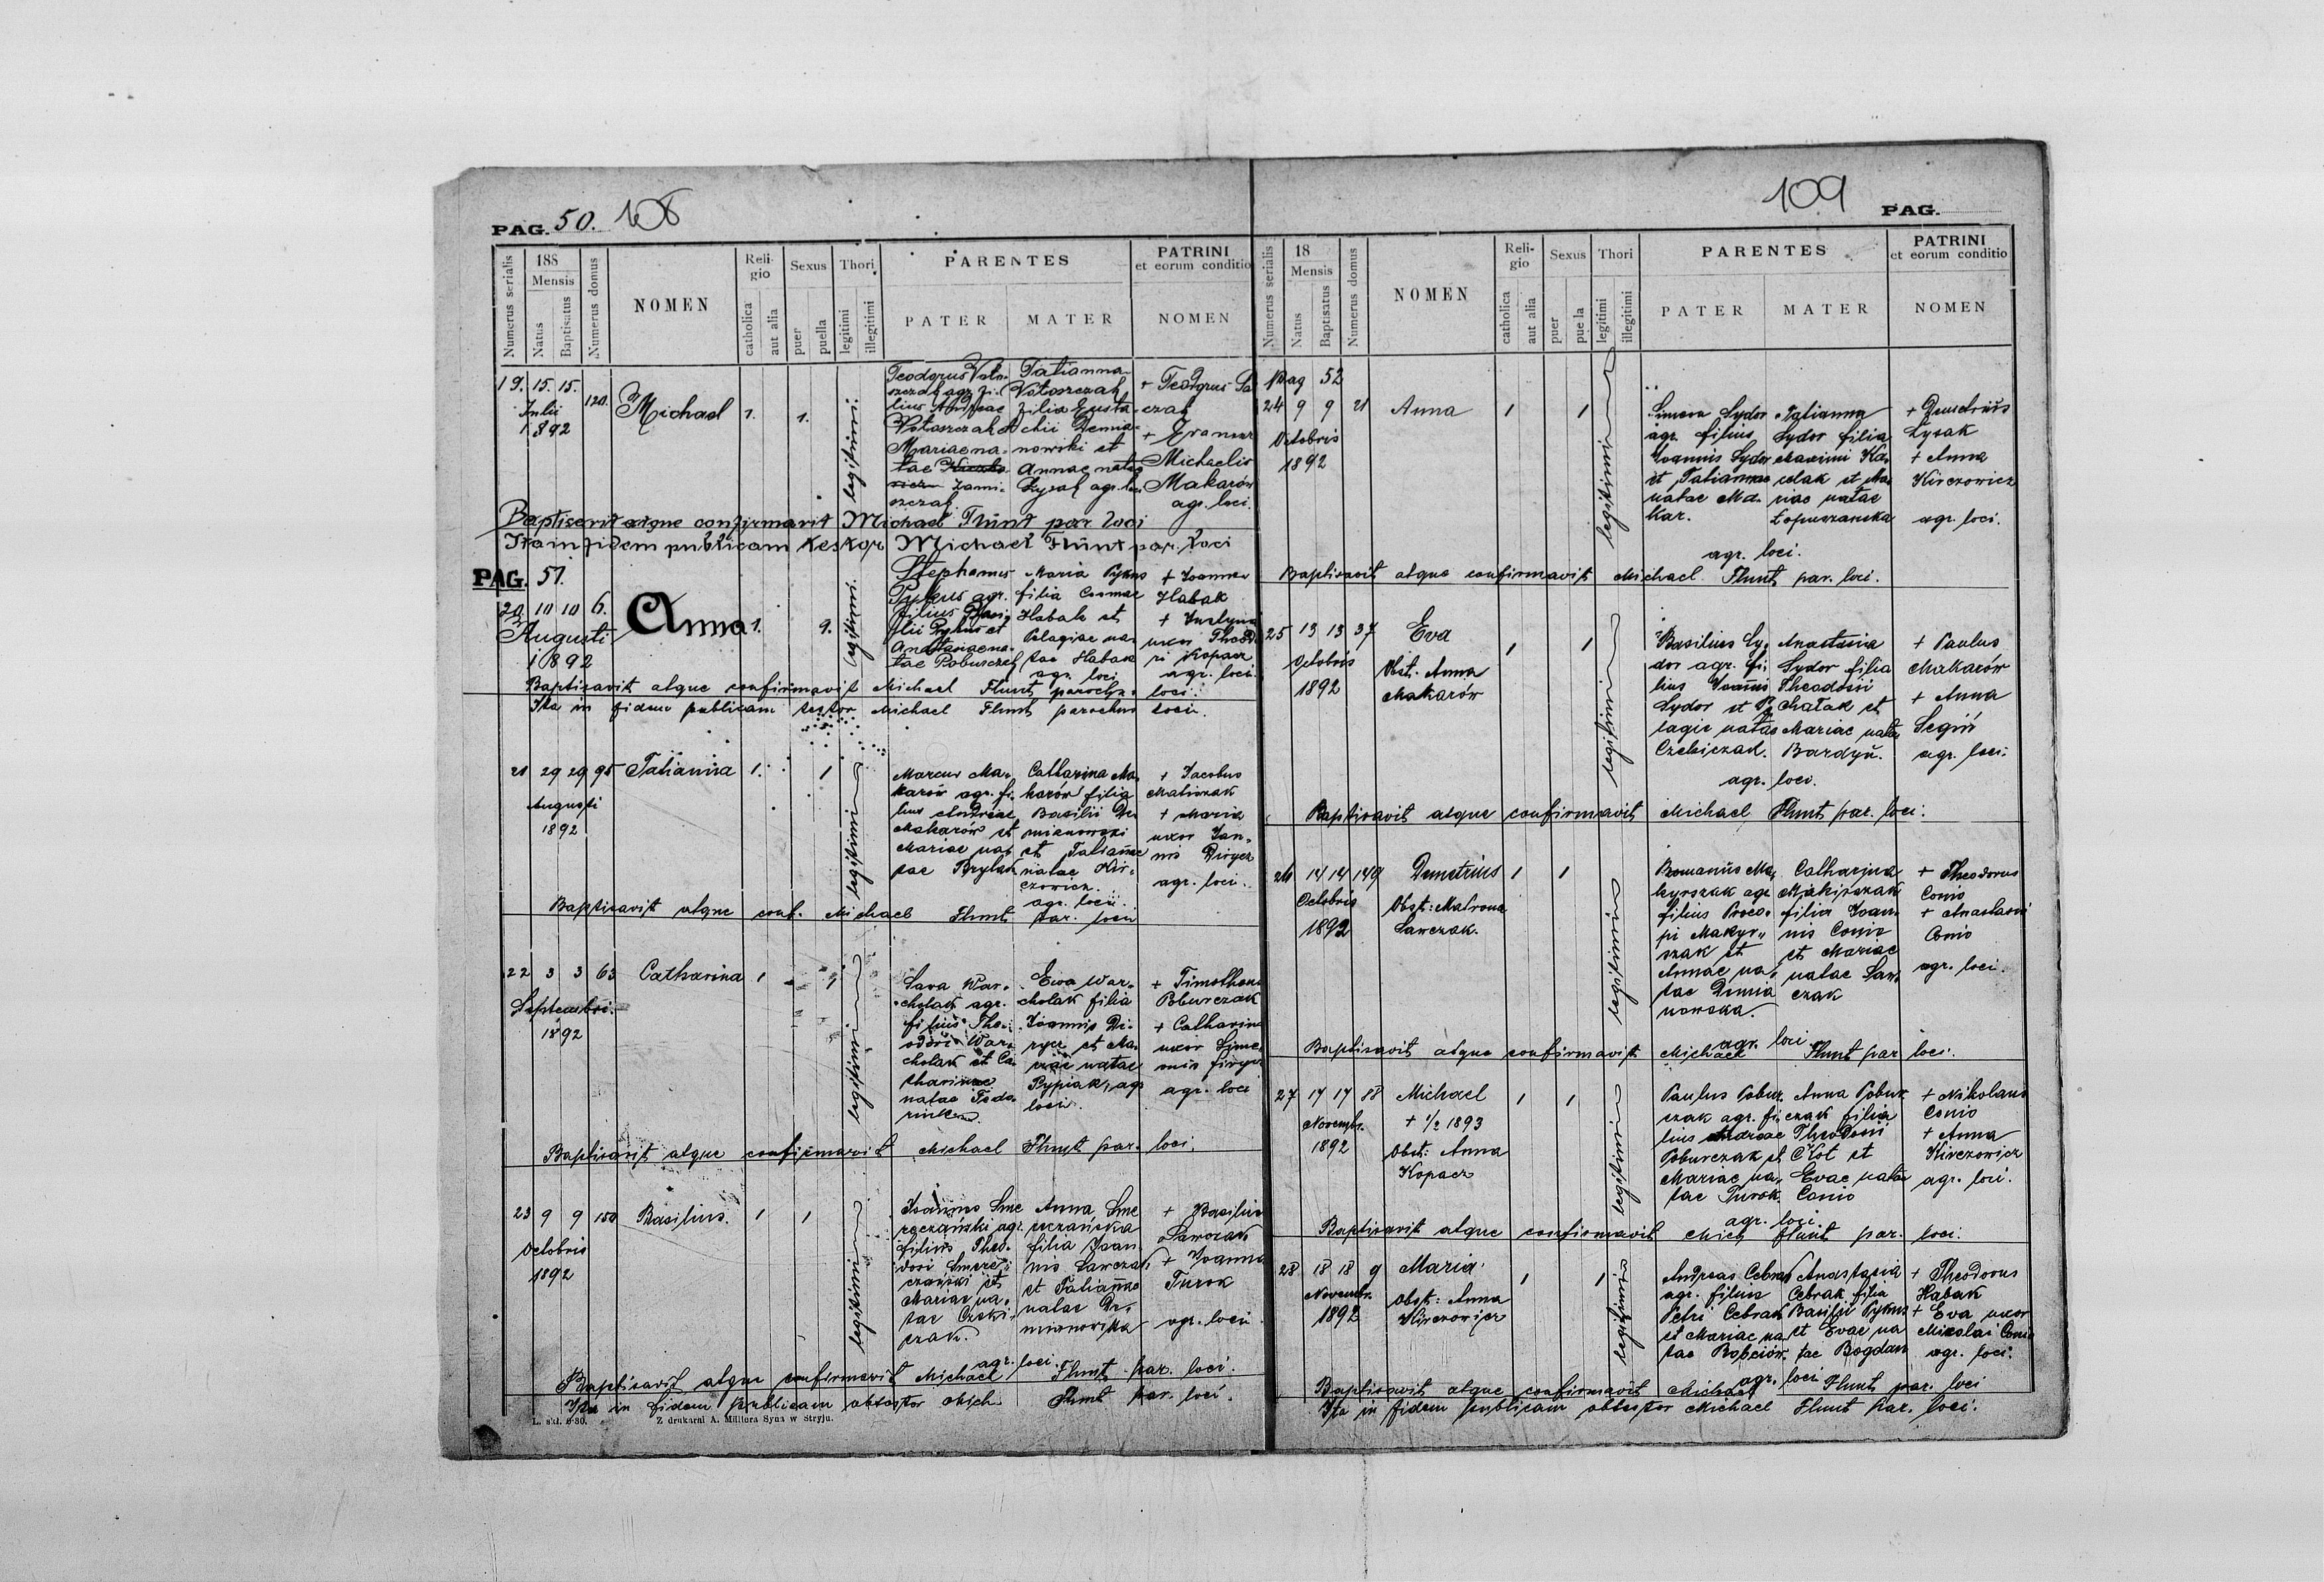 PAG. 50. 108
Numerus serialis
188
Mensis
Natus
Baptisatus
Numerus domus
NOMEN
Religio
catholica
aut alia
Sexus
puer
puella
Thori
legitimi
illegitimi
PARENTES
PATER
MATER
PATRINI
et eorum conditio
NOMEN
19. 15. 15. 120. Michael 1. 1.
Julii
1892
legitimi
Teodorus Woto-
szczak agr. fi-
lius Andreae
Wotoszczak et
Mariae na-
tae
Janni-
szczak
Tatianna
Wotoszczak
filia Eusta-
chii Demia-
nowski et
Annae natae
Łysak agr. loci
+ Teodorus Sa
czak
Michaelis
Makarów
agr. loci.
Baptisavit atque confirmavit Michael Flünt par loci
Ita in fidem publicam testor Michael Flünt par. loci
PAG. 51.
20. 10 10 6. Anna 1. 1.
Augusti
1892
legitimi.
Stephanus
agr.
filius
et
Anastasiae na-
tae Poburczak
Maria Pykus
filia Cosmae
Habak et
Pelagiae na-
tae Habak
agr. loci
+ Ioannes
Habak
uxor Theodo
ri Kopacz
agr. loci
Baptisavit atque confirmavit Michael Flunt parochus loci.
Ita in fidem publicam testor Michael Flunt parochus loci.
21 29 29 95 Tatianna 1. 1
Augusti
1892
legitimi
Marcus Ma-
karów agr. fi-
lius Andreae
Makarów et
Mariae na-
tae Brylak
Catharina Ma-
karów filia
Basilii De-
mianowski
et Tatiannae
natae Kir-
czowicz.
agr. loci.
+ Jacobus
Matiszak
+ Maria
uxor Ioan-
nis Dirycz
agr. loci.
Baptisavit atque conf. Michael Flunt par. loci
22 3 3 63 Catharina 1 1
Septembri.
1892
legitimi
Sava War-
cholak agr.
filius Theo-
dori War-
cholak et Ca-
tharinae
natae Fedo-
Ewa War-
cholak filia
Joannis Di-
rycz et Ma-
riae natae
Pypiak, agr
loci.
+ Timotheus
Poburczak
+ Catharina
uxor Sime-
onis
agr. loci
Baptisavit atque confirmavit Michael Flunt par. loci.
23 9 9 150 Basilius. 1 1
Octobris
1892
legitimi
Ioannes Sme
reczański agr.
filius Theo-
dori Smere-
czański et
Mariae na-
tae
czak.
Anna Sme
reczańska
filia Joan-
nis Lawczak
et Tatiannae
natae De-
mianowska
agr. loci.
+ Basilius
Lawczak
+ Joanna
Turok
agr. loci.
Baptisavit atque confirmavit Michael Flunt par. loci.
Ita in fidem publicam obtestor Mich. Flunt par. loci.
L. skl. 6-80. Z drukarni A. Müllera Syna w Stryju.
109 PAG.
Numerus serialis
18
Mensis
Natus
Baptisatus
Numerus domus
NOMEN
Religio
catholica
aut alia
Sexus
puer
puella
Thori
legitimi
illegitimi
PARENTES
PATER
MATER
PATRINI
et eorum conditio
NOMEN
Pag 52
24 9 9 21 Anna 1 1
Octobris
1892
legitimi
Simeon Sydor
agr. filius
Ioannis Sydor
et Tatiannae
natae Ma-
kar.
Tatianna
Sydor filia
Maximi Ka-
et Ma-
riae natae
Łopuszanska
agr. loci.
+ Demetrius
Łysak
+ Anna
Kirczowicz
agr. loci.
Baptisavit atque confirmavit Michael Flunt par. loci.
25 13 13 37 Eva 1 1
Octobris
1892
Obst: Anna
Makarów
legitimi
Basilius Sy-
dor agr. fi-
lius Ioannis
Sydor et Pe-
lagie natae
Anastasia
Sydor filia
Theodosii
et
Mariae natae
Bardyn.
agr. loci.
+ Paulus
Makarów
+ Anna
Segin
agr. loci.
Baptisavit atque confirmavit Michael Flunt par. loci.
26 14 14 149 Demetrius 1 1
Octobris
1892
Obst: Matrona
Lawczak.
legitimi
Romanus Ma-
kyrszak agr
filius Proco-
pi Makyr-
szak et
Annae na-
tae Demia
nowska.
Catharina
filia Ioan-
nis Conio
et Mariae
natae Law-
czak
agr. loci
+ Theodorus
Conio
+ Anastasia
Conio
agr. loci.
Baptisavit atque confirmavit Michael Flunt par loci.
27 17 17 88 Michael 1 1
Novembr.
1892
+ 1/2 1893
Obst: Anna
Kopacz
legitimi
Paulus Pobur-
czak agr. fi-
lius Andreae
Poburczak et
Mariae na-
tae Turok.
Anna Pobur-
czak filia
Theodosii
Kot et
Evae natae
Conio
agr. loci
+ Nikolaus
Conio
+ Anna
Kirczowicz
agr. loci.
Baptisavit atque confirmavit Mich Flunt par. loci.
28 18 18 9 Maria 1 1
Novembr.
1892
Obst: Anna
Kirczowicz
legitimi
Andreas Cebrak
agr. filius
Petri Cebrak
et Mariae na-
tae
Anastasia
Cebrak filia
Basilii Pykus
et Evae na
tae Bogdan
agr. loci
+ Theodorus
Habak
+ Eva uxor
Mikolai Conio
agr. loci.
Baptisavit atque confirmavit Michael Flunt par. loci
Ita in fidem publicam obtestor Michael Flunt par. loci.